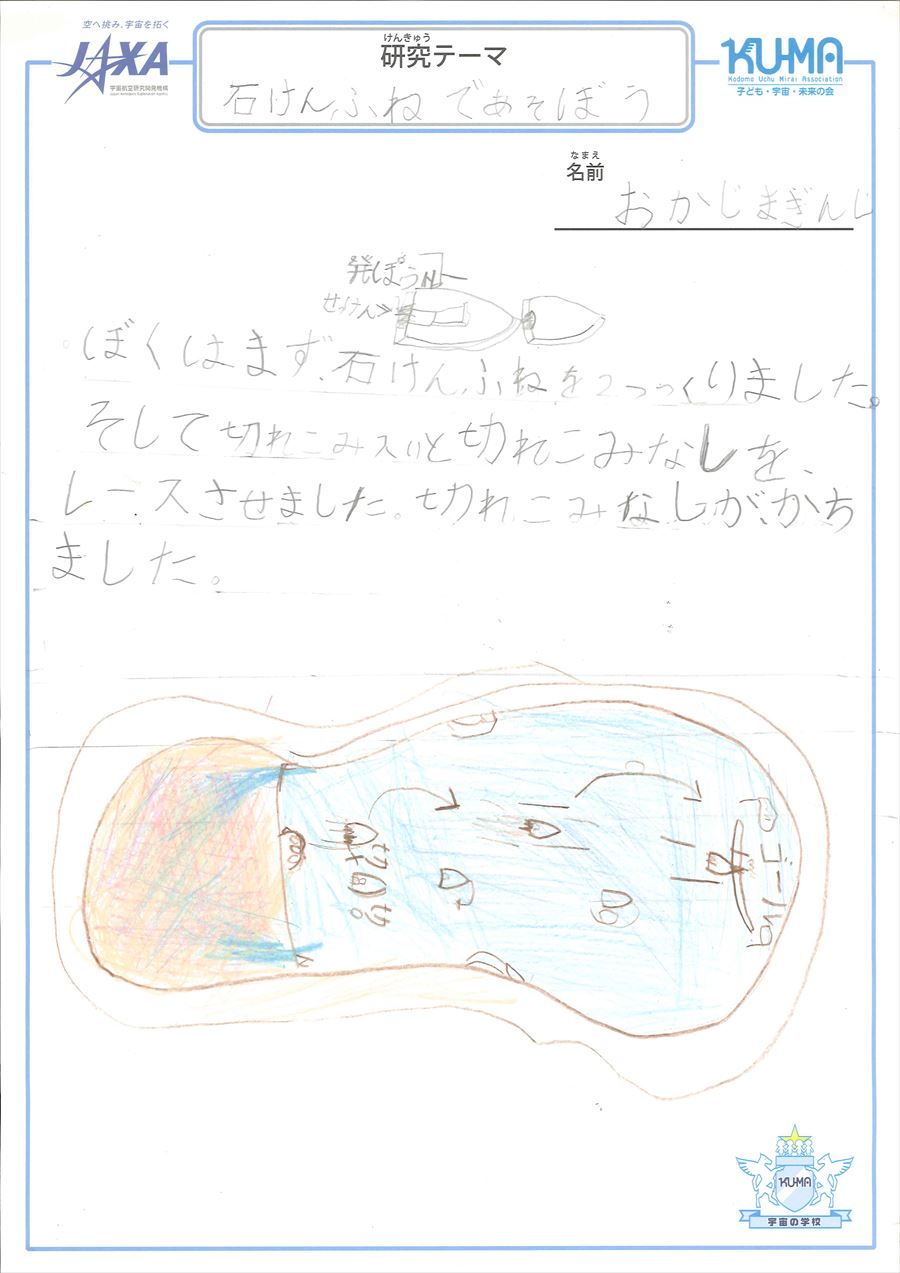 空へ挑み、宇宙を拓く
JAXA
宇宙航空研究開発機構
Japan Aerospace Exploration Agency
けんきゅう
研究テーマ
石けんふねであそぼう
KU-MA
Kodomo Uchu Mirai Association
子ども・宇宙・未来の会
なまえ
名前
おかじまぎんじ
発ぽう
せっけん
ぼくはまず、石けんふねを2つつくりました。
そして切れこみ入いと切れこみなしを、
レースさせました。切れこみなしが、かち
ました。
ゴール
KU-MA
宇宙の学校